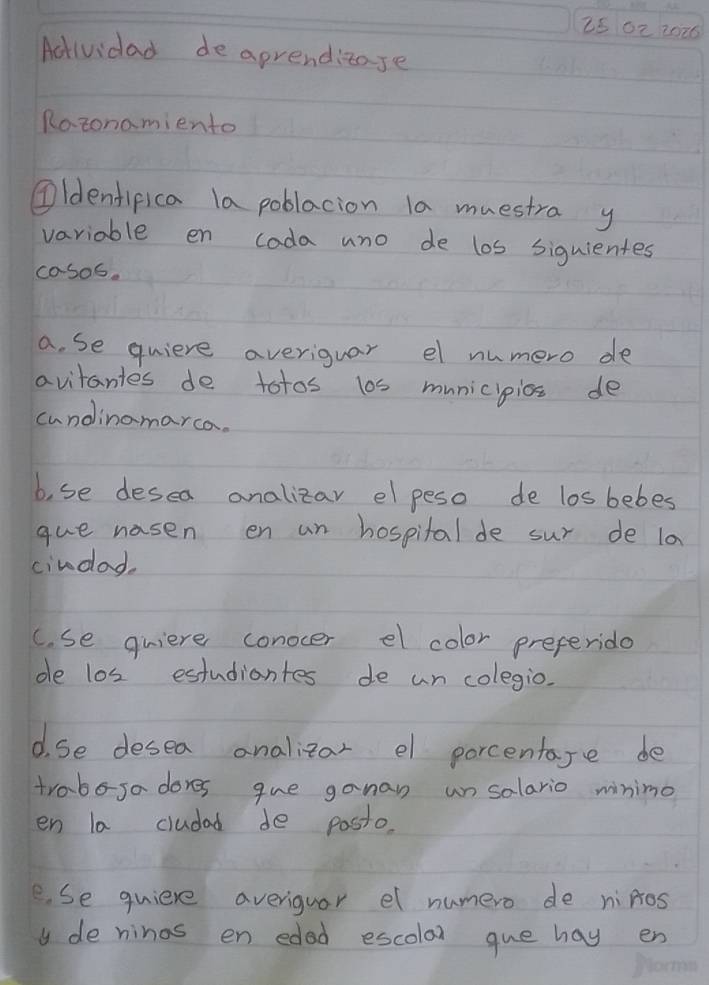 25 02 2026
Actividad de aprendizaje
Razonamiento
① Identifica la poblacion la muestra y
variable en cada uno de los siguientes
casos.
a. Se quiere averiguar el numero de
avitantes de totos los municipios de
cundinamarca.
b. se desea analizar el peso de los bebes
que nasen en un hospital de sur de la
ciudad.
c. se quiere conocer el color preferido
de los estudiantes de un colegio.
d. Se desea analizar el porcentaje de
trabajadores que ganan un salario minimo
en la ciudad de pasto.
e. Se quiere averiguar el numero de niños
y de ninas en edad escolar que hay en
Norma